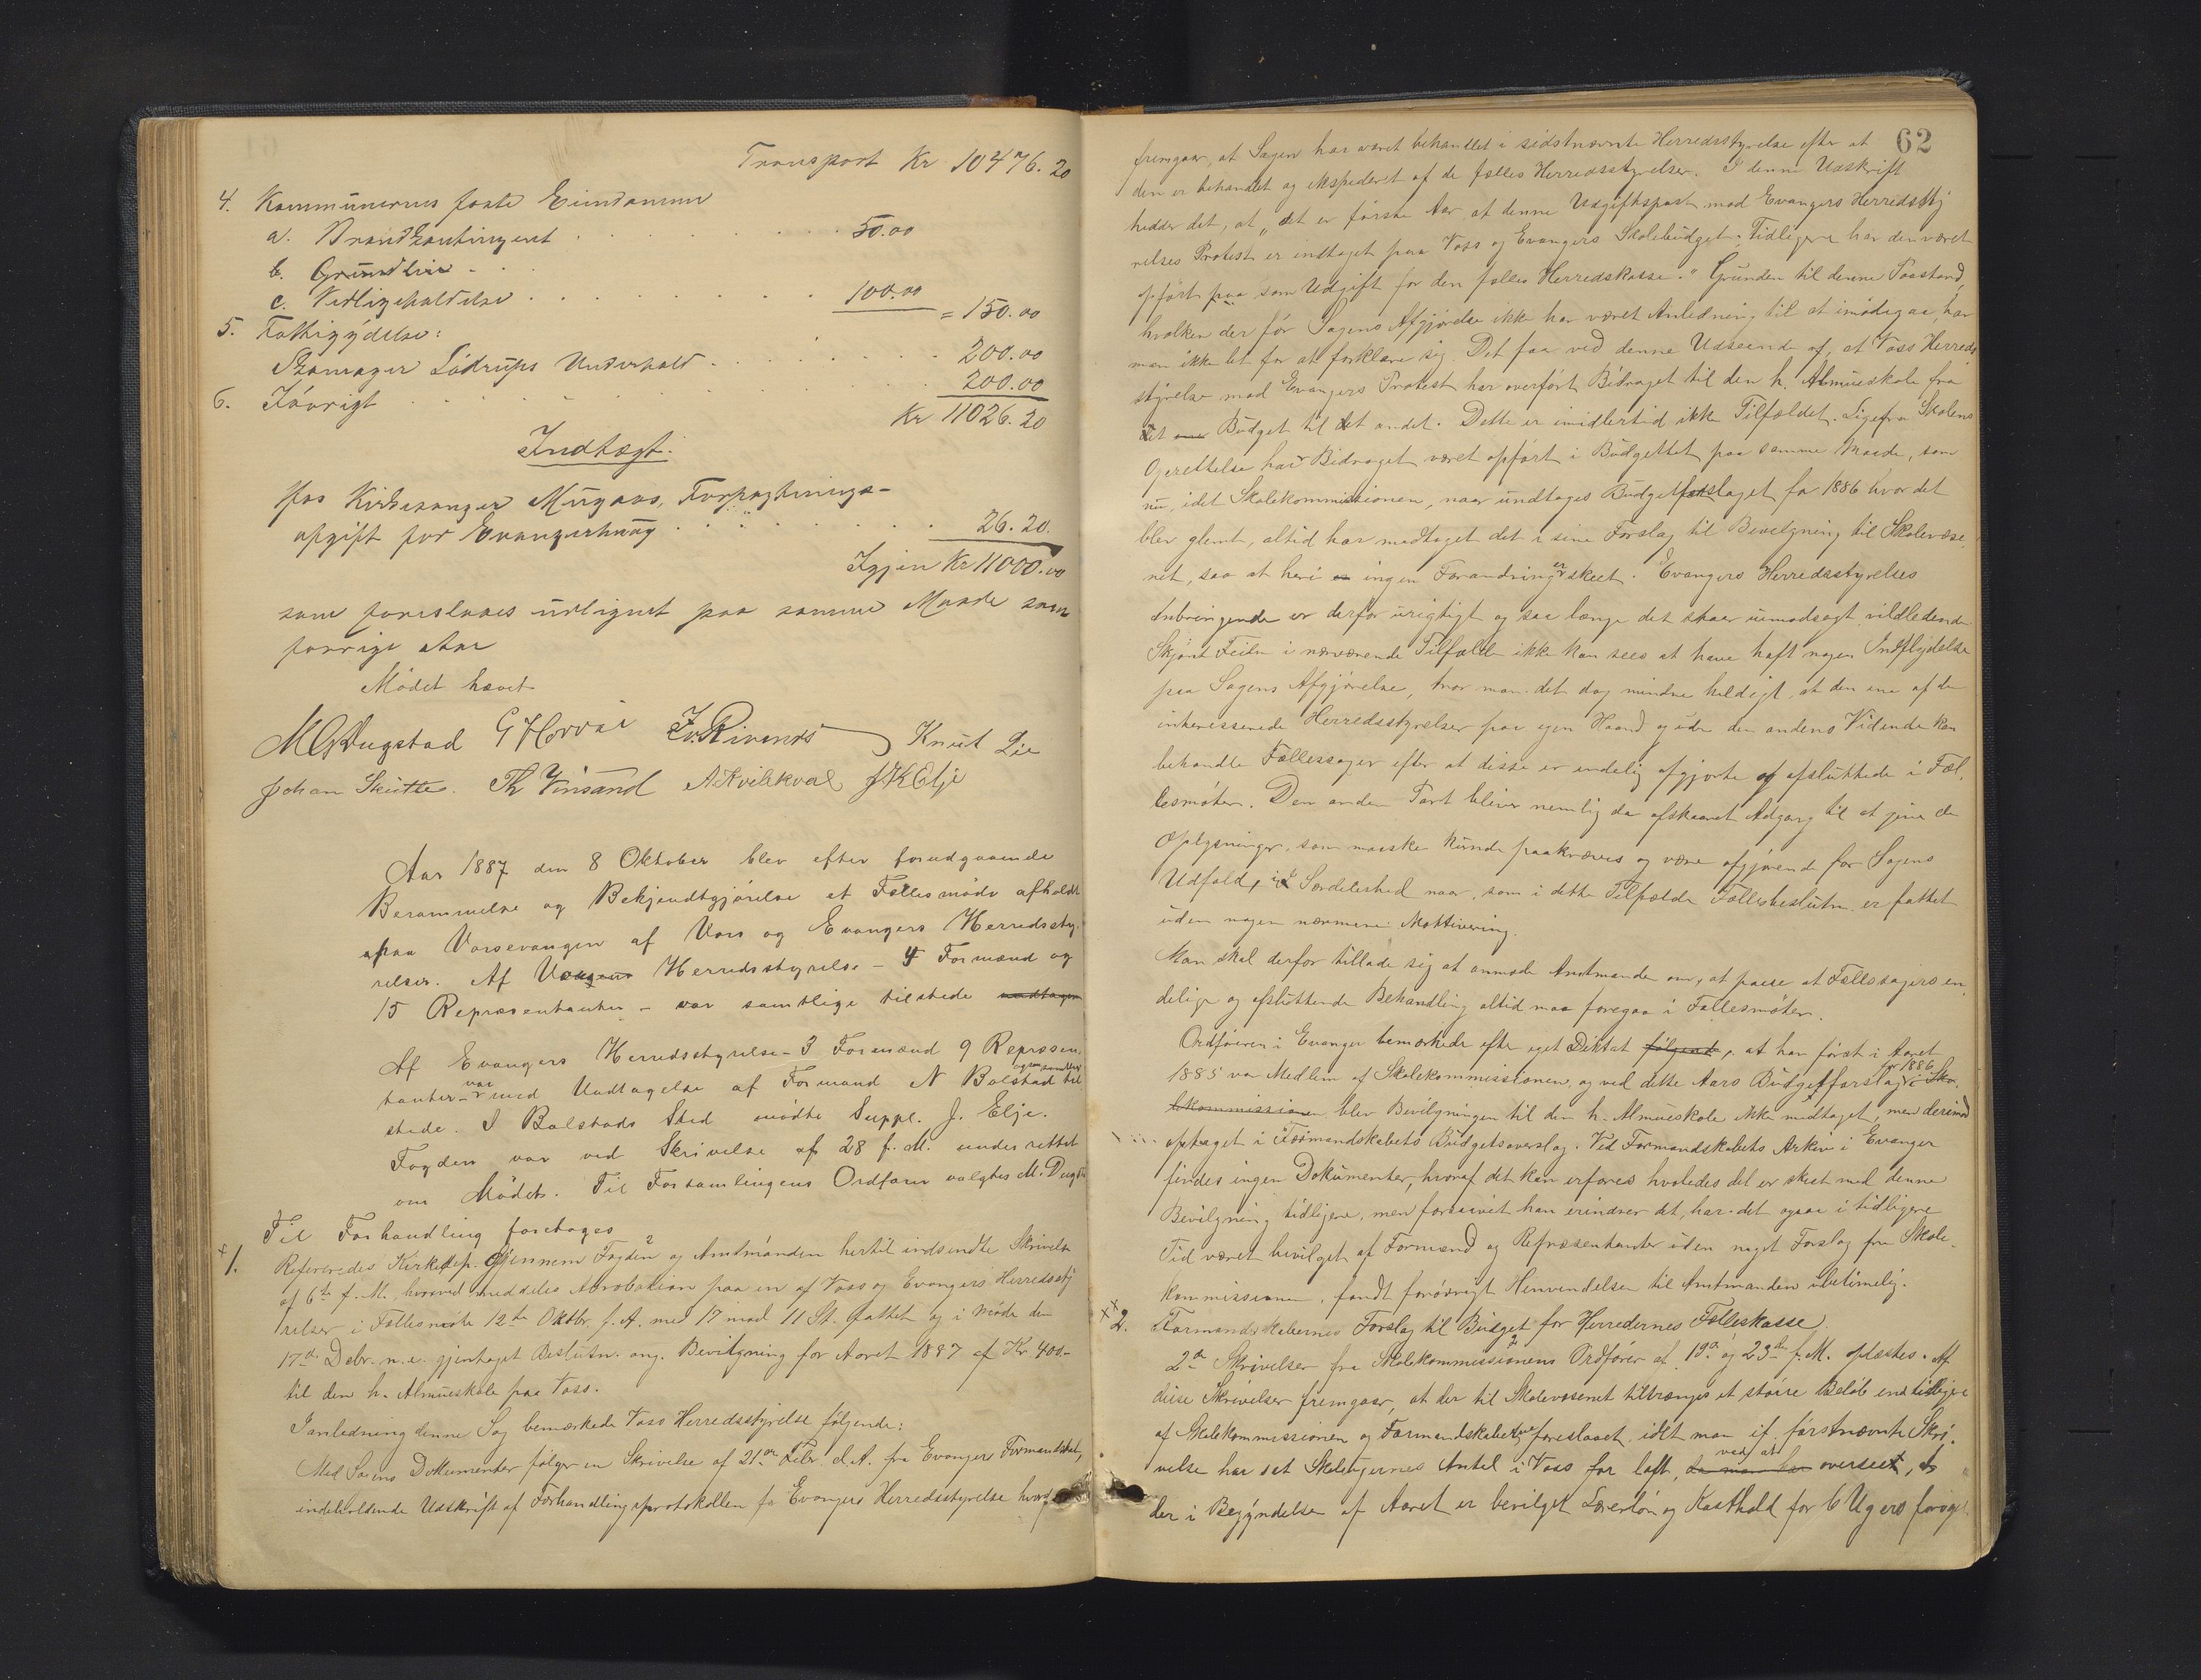 Transport Kr 10476.20
4. Kommunernes faste Eiendomme
a. Brandkontingent . . . . . 50.00
b. Grundleie - . .
c. Vedligeholdelse . . . . . 100.00 = 150.00
5. Fattigydelse:
Skomager Lödrups Underhold . . . . . 200.00
6. Iövrigt . . . . . 200.00
Kr 11026.20
Indtægt.
fra Kirkesanger Mugaas, Forpagtnings-
afgift for Evangerhaug . . . . . 26.20.
Igjen Kr 11000.00
som foreslaaes udlignet paa samme Maade som
forrige Aar
Mödet hævet
MGDugstad G Horvei Knut Lie
Johan Skutle. Th Vinsand A Kvilekval J K Elje
Aar 1887 den 8 Oktober blev efter forudgaaende
Berammelse og Bekjendtgjörelse et Fællesmöde afholdt
paa Vossevangen af Voss og Evangers Herredssty-
relser. Af Herredsstyrelse - 4 Formænd og
15 Repræsentanter - var samtlige tilstede undtagen
Af Evangers Herredsstyrelse - 3 Formænd 9 Repræsen-
tanter - var med Undtagelse af Formand N Bolstad til
stede. I Bolstads Sted mödte Suppl. J. Elje.
Fogden var ved Skrivelse af 28 f. M. underrettet
om Mödet. Til Forsamlingens Ordförer valgtes M. Dugst
Til Forhandling foretoges
× 1. Refereredes Kirkedep. gjennem Fogden og Amtmanden hertil indsendte Skrivelse
af 6te f. M., hvorved meddeles Aprobation paa en af Voss og Evangers Herredssty
relser i Fællesmöte 12te Oktbr. f. A. med 17 mod 11 St. fattet og i Möde den
17de Debr. n. e. gjentaget Beslutn. ang. Bevilgning for Aaret 1887 af Kr. 400-
til den h. Almueskole paa Voss.
I anledning denne Sag bemærkede Voss Herredsstyrelse følgende:
Med Sagens Dokumenter følger en Skrivelse af 21de Febr. d. A. fra Evangers Formandskab,
indeholdende Udskrift af Forhandlingsprotokollen for Evangers Herredsstyrelse hvoraf
62
fremgaar, at Sagen har været behandlet i sidstnævnte Herredsstyrelse efter at
den er behandlet og ekspederet af de fælles Herredsstyrelser. I denne Udskrift
hedder det, at „det er første Aar, at denne Udgiftspost mod Evangers Herredssty
relses Protest er indtaget paa Voss og Evangers Skolebudget. Tidligere har den været
opfört paa som Udgift for den fælles Herredskasse.“ Grunden til denne Paastand,
hvilken der för Sagens Afgjörelse ikke har været Anledning til at imödegaa, har
man ikke let for at forklare sig. Det faar ved denne Udseende af, at Voss Herreds
styrelse mod Evangers Protest har overfört Bidraget til den h. Almueskole fra
det ene Budget til det andet. Dette er imidlertid ikke Tilfældet. Ligefra Skolens
Oprettelse har Bidraget været opfört i Budgettet paa samme Maade, som
nu, idet Skolekommissionen, naar undtages Budgetforslaget for 1886 hvor det
blev glemt, altid har medtaget det i sine Forslag til Bevilgning til Skolevæse-
net, saa at heri er ingen Forandring er skeet. Evangers Herredsstyrelses
Anbringende er derfor urigtigt og saa længe det staar uimodsagt vildledende
Skjönt Feilen i nærværende Tilfælde ikke kan sees at have haft nogen Indflydelse
paa Sagens Afgjörelse, tror man det dog mindre heldigt, at den ene af de
interesserede Herredsstyrelser paa egen Haand og uden den andens Vidende kan
behandle Fællessager efter at disse er endelig afgjorte og afsluttede i Fæl-
lesmöter. Den anden Part bliver nemlig da afskaaret Adgang til at give de
Oplysninger, som maaske kunde paakræves og være afgjörende for Sagens
Udfald, i Særdeleshed naar, som i dette Tilfælde Fællesbeslutn. er fattet
uden nogen nærmere Mottivering.
Man skal derfor tillade sig at anmode Amtmanden om, at paase at Fællessagers en-
delige og afsluttende Behandling altid maa foregaa i Fællesmöter.
Ordföreren i Evanger bemærkede efter eget Diktat følgende, at han först i Aaret
1885 var Medlem af Skolekommissionen, og ved dette Aars Budgetforslag for 1886 i Sko-
lekommissionen blev Bevilgningen til den h. Almueskole ikke medtaget, men derimod
optaget i Formandskabets Budgetsoverslag. Ved Formandskabets Arkiv i Evanger
findes ingen Dokumenter, hvoraf det kan erfares hvoledes det er skeet med denne
Bevilgning tidligere, men forsaavidt han erindrer det, har det ogsaa i tidligere
Tid været bevilget af Formænd og Repræsentanter uden noget Forslag fra Skole-
kommissionen, fandt forövrigt Henvendelsen til Amtmanden ubetimelig.
×× 2. Formandskabernes Forslag til Budget for Herredernes Fælleskasse.
2de Skrivelser fra Skolekommissionens Ordförer af 19de og 23de f. M. oplæstes. Af
disse Skrivelser fremgaar, at der til Skolevæsenet tiltrænges et större Belöb end tidligere
af Skolekommissionen og Formandskaberne foreslaaet, idet man if. förstnævnte Skri-
velse har sat Skoleugernes Antal i Voss for lavt, da man har ved at overseet, at
der i Begyndelsen af Aaret er bevilget Lærerlön og Kosthold for 6 Ugers foröget